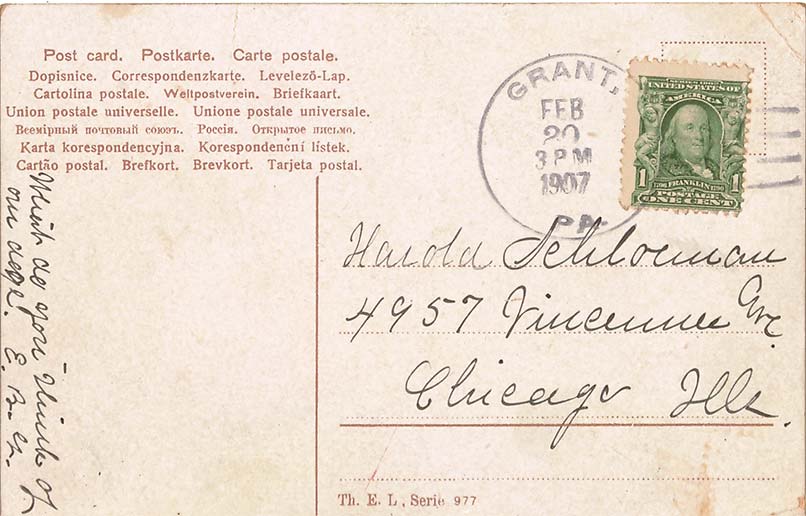 Post card. Postkarte. Carte postale.
Dopisnice. Correspondenzkarte. Levelezö-Lap.
Cartolina postale. Weltpostverein. Briefkaart.
Union postale universelle. Unione postale universale.
Всемірный почтовый союзъ. Россія. Открытое письмо.
Karta korespondencyjna. Korespondenční lístek.
Cartão postal. Brefkort. Brevkort. Tarjeta postal.
GRANT,
FEB
20
3 PM
1907
PA.
SERIES 1902
UNITED STATES OF
AMERICA
1 FRANKLIN 1
POSTAGE
ONE CENT
Harold Schloeman
4957 Vincennes Ave.
Chicago Ills.
What do you think of
our dogs.
Th. E. L., Serie 977